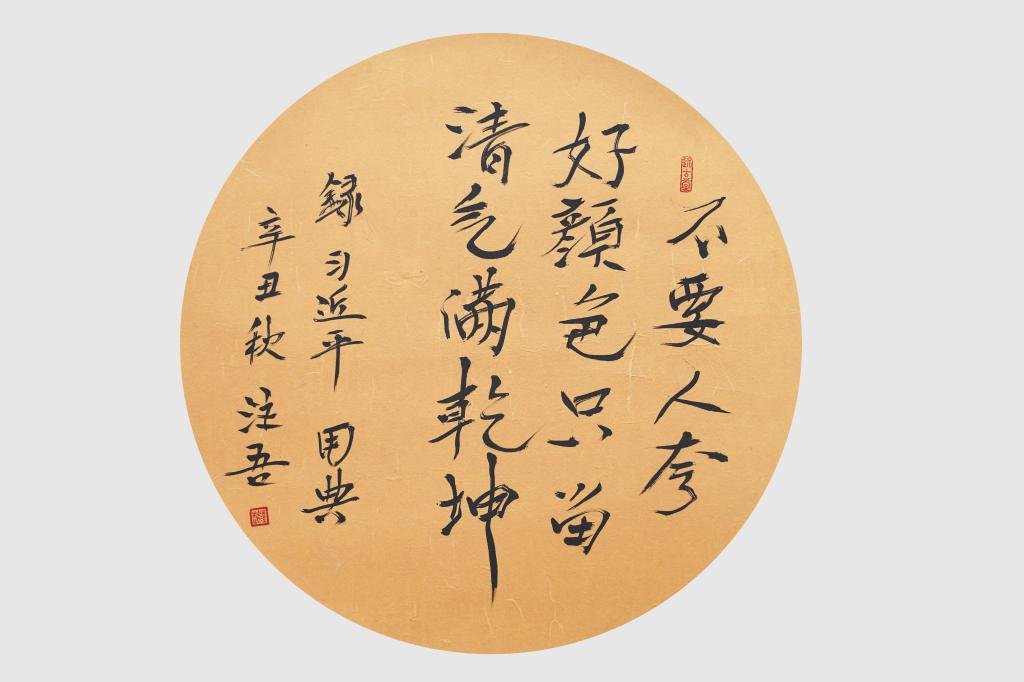 不要人夸
好顔色只留
清气满乾坤
録习近平 用典
辛丑秋 注吾